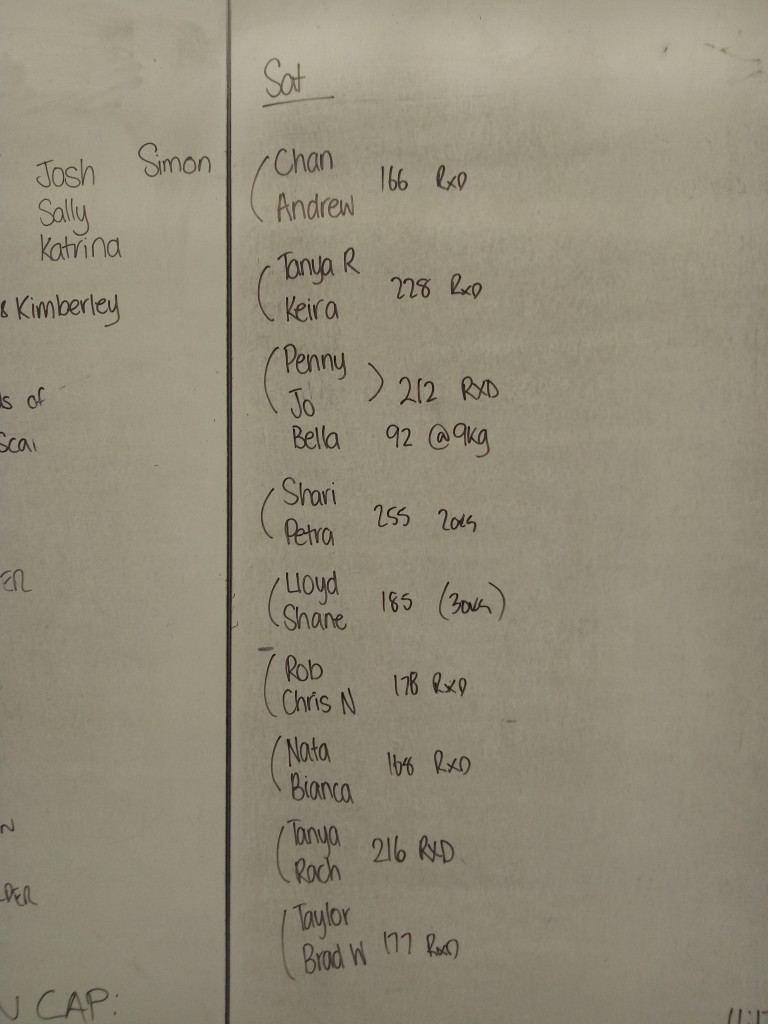 Sat
Josh Simon
Sally
Katrina
& Kimberley
of
Chan
166 RxD
Andrew
Tanya R
228 RxD
Keira
Penny
212 RXD
Jo
Bella 92 @9kg
Shari
255 20kg
Petra
Lloyd
185 (30kg)
Shane
Rob
178 RxD
Chris N
Nata
168 RxD
Bianca
Tanya
216 RXD
Rach
Taylor
Brad W 177 RxD
CAP: